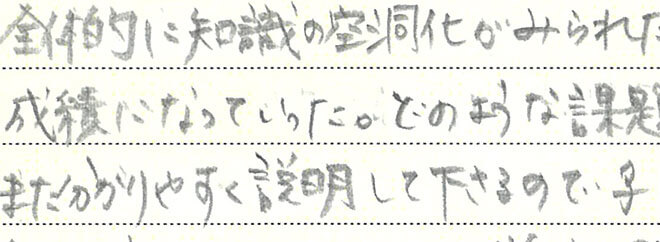 全体的に知識の空洞化がみられた
成績になっていったが どのような課題
また分かりやすく説明して下さるので、子